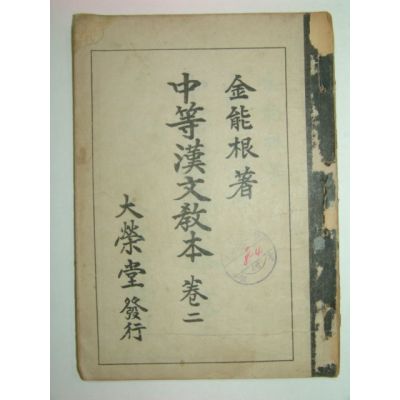 金能根著
中等漢文敎本 卷二
大榮堂 發行